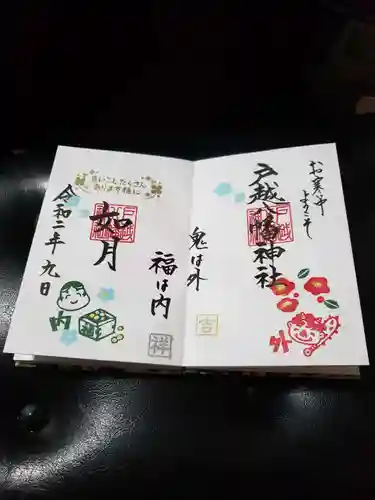 お寒い中
ようこそ
戸越八幡神社
外
鬼は外
吉
福は内
祥
良いことたくさん
ありますように
如月
令和二年 九日
内